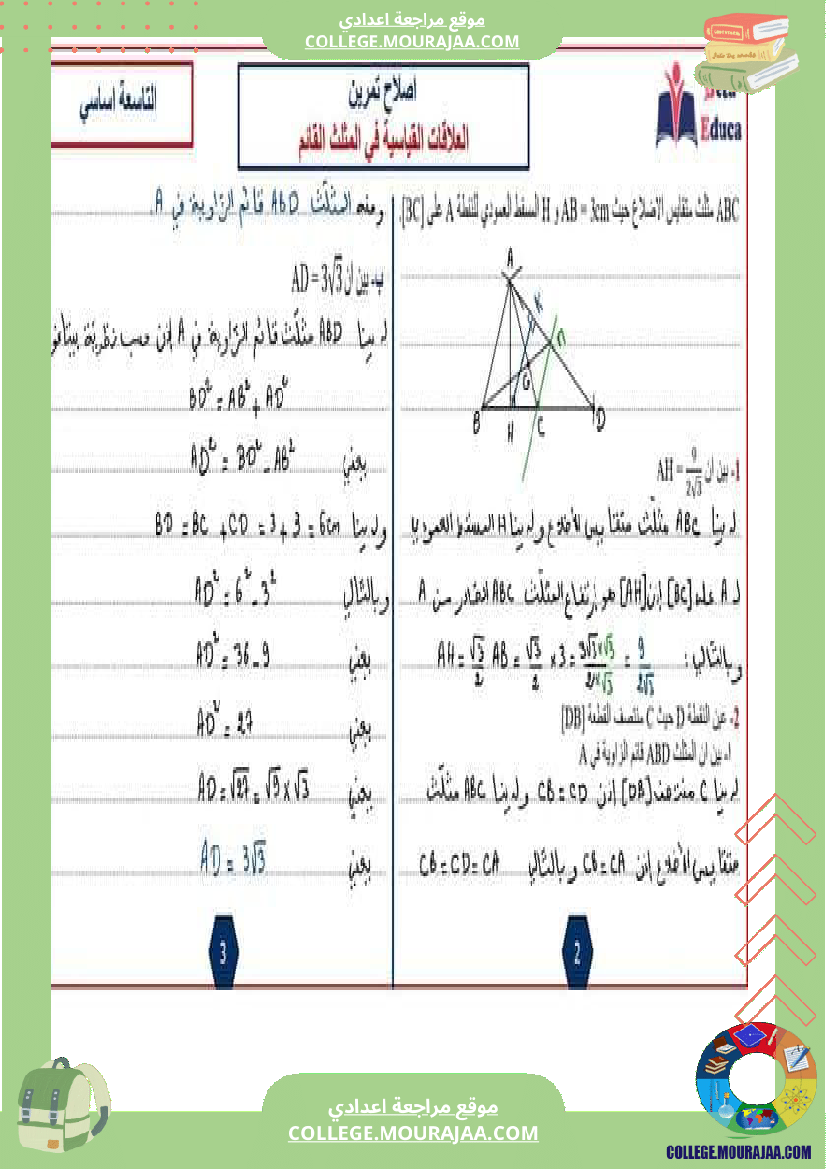 موقع مراجعة اعدادي
COLLEGE.MOURAJAA.COM
Educa
اصلاح تمرين
العلاقات القياسية في المثلث القائم
التاسعة اساسي
ABC مثلث متقايس الاضلاع حيث AB = 3cm و H المسقط العمودي للنقطة A على [BC].
A
K
G
B
H
C
D
1- بين ان AH = 9/2√3
لدينا ABC مثلّث متقايس الأضلاع ولدينا H المسقط العمودي
لـ A على [BC] إذن [AH] هو إرتفاع المثلّث ABC الصادر من A
وبالتّالي: AH = √3/2 AB = √3/2 × 3 = 3√3×√3/2×√3 = 9/2√3
2- عين النقطة D حيث C منتصف القطعة [DB]
ا- بين ان المثلث ABD قائم الزاوية في A
لدينا C منتصف [DB] إذن CB = CD ولدينا ABC مثلّث
متقايس الأضلاع إذن CB = CA وبالتّالي CB = CD = CA
2
ومنه المثلّث ABD قائم الزّاوية في A.
ب- بين ان AD = 3√3
لدينا ABD مثلّث قائم الزّاوية في A إذن حسب نظريّة بيتاغور
BD² = AB² + AD²
يعني AD² = BD² - AB²
ولدينا BD = BC + CD = 3 + 3 = 6cm
وبالتّالي AD² = 6² - 3²
يعني AD² = 36 - 9
يعني AD² = 27
يعني AD = √27 = √9 × √3
يعني AD = 3√3
3
موقع مراجعة اعدادي
COLLEGE.MOURAJAA.COM
COLLEGE.MOURAJAA.COM